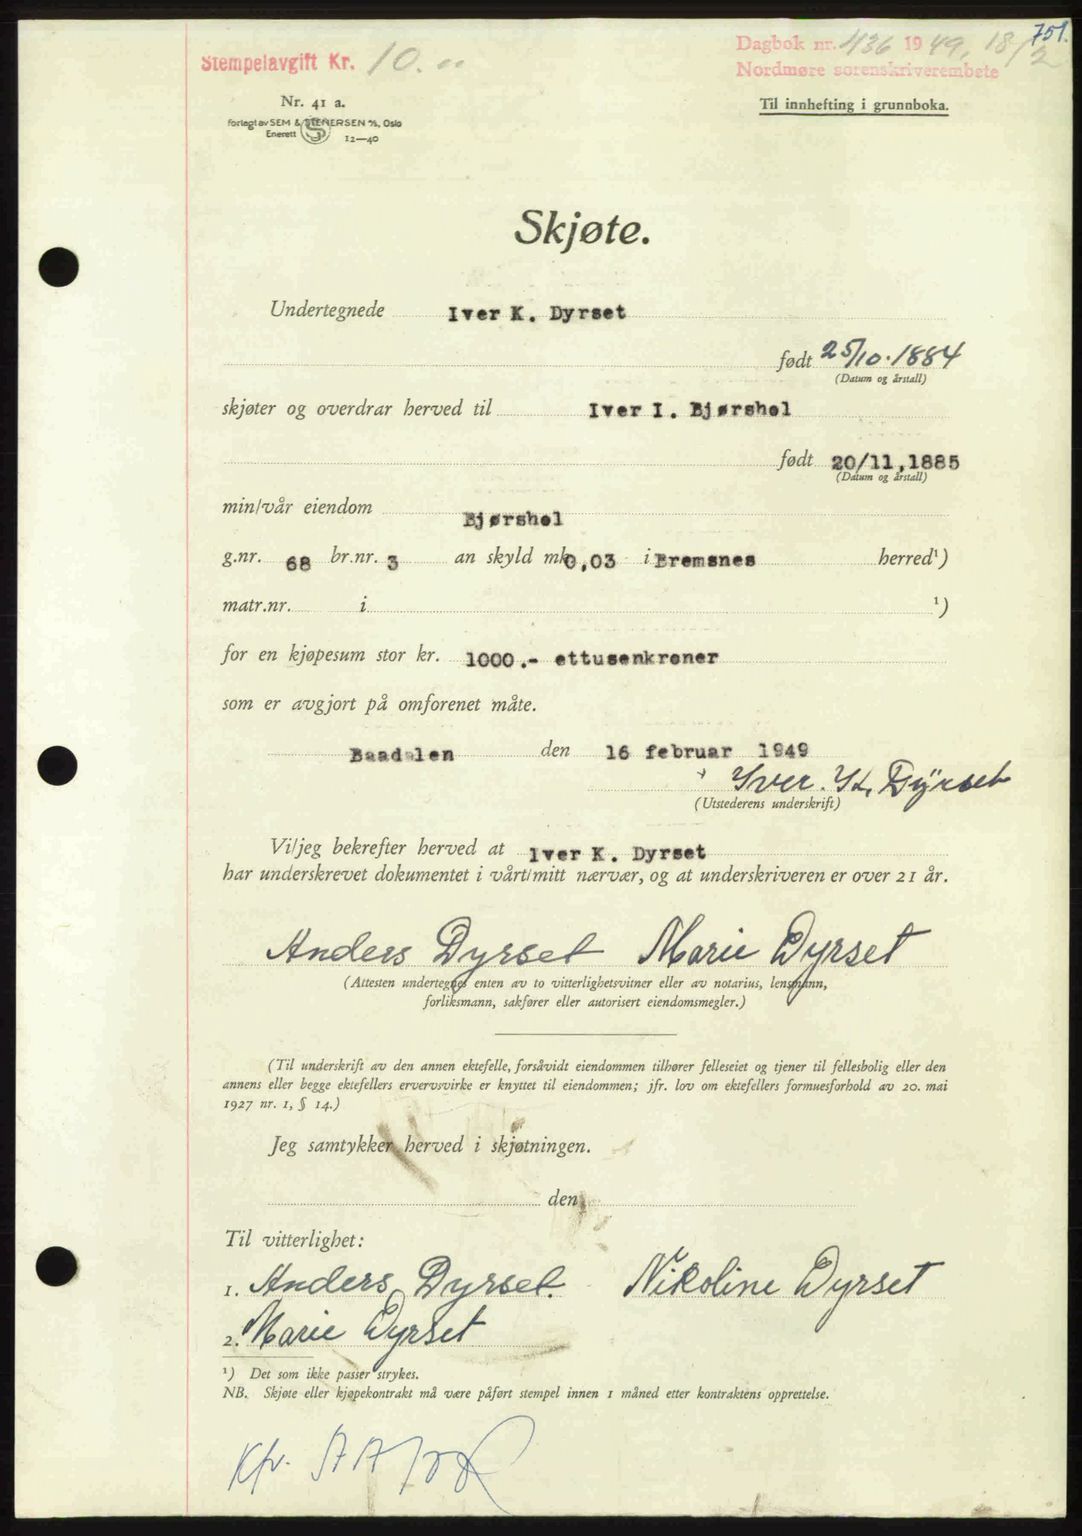 751.
Stempelavgift Kr. 10.
Dagbok nr. 436 1949, 18/2
Nordmøre sorenskriverembete
Nr. 41 a.
Til innhefting i grunnboka.
Forlagt av SEM & STENERSEN A/S, Oslo
Enerett 12—40
Skjøte.
Undertegnede Iver K. Dyrset
født 25/10.1884
(Datum og årstall)
skjøter og overdrar herved til Iver I. Bjørshol
født 20/11,1885
(Datum og årstall)
min/vår eiendom Bjørshol
g.nr. 68 br.nr. 3 an skyld mk 0,03 i Bremsnes herred¹)
matr.nr. i ¹)
for en kjøpesum stor kr. 1000.- ettusenkroner
som er avgjort på omforenet måte.
Baadalen den 16 februar 1949
Iver. K. Dyrset
(Utstederens underskrift)
Vi/jeg bekrefter herved at Iver K. Dyrset
har underskrevet dokumentet i vårt/mitt nærvær, og at underskriveren er over 21 år.
Anders Dyrset Marie Dyrset
(Attesten undertegnes enten av to vitterlighetsvitner eller av notarius, lensmann,
forliksmann, sakfører eller autorisert eiendomsmegler.)
(Til underskrift av den annen ektefelle, forsåvidt eiendommen tilhører felleseiet og tjener til fellesbolig eller den
annens eller begge ektefellers ervervsvirke er knyttet til eiendommen; jfr. lov om ektefellers formuesforhold av 20. mai
1927 nr. 1, § 14.)
Jeg samtykker herved i skjøtningen.
den
Til vitterlighet:
1. Anders Dyrset. Nikoline Dyrset
2. Marie Dyrset
¹) Det som ikke passer strykes.
NB. Skjøte eller kjøpekontrakt må være påført stempel innen 1 måned etter kontraktens opprettelse.
Kfr.